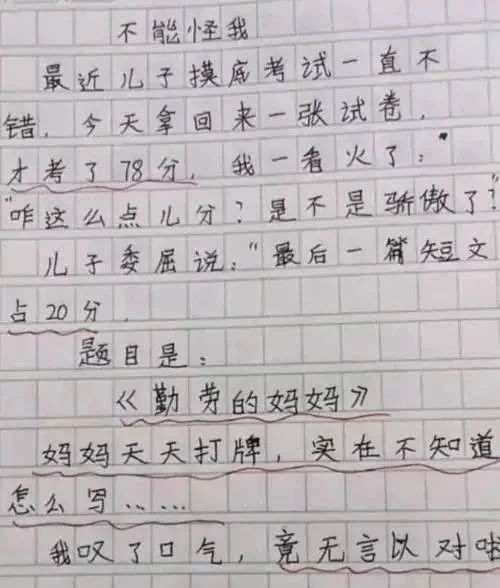 不能怪我
最近儿子摸底考试一直不
错，今天拿回来一张试卷，
才考了78分，我一看火了："
"咋这么点儿分？是不是骄傲了？"
儿子委屈说："最后一篇短文
占20分．
题目是：
《勤劳的妈妈》
妈妈天天打牌，实在不知道
怎么写……
我叹了口气，竟无言以对咕